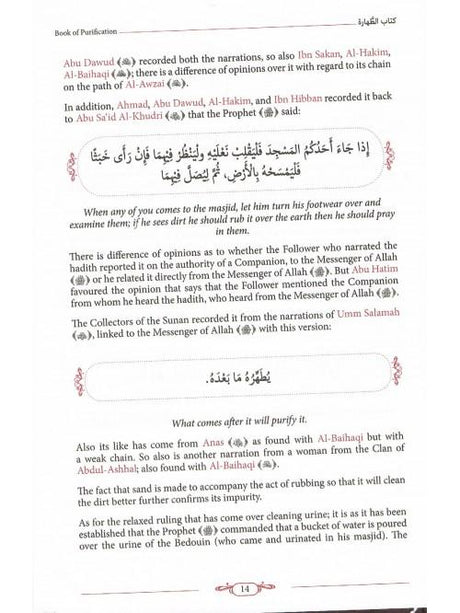 Book of Purification
كتاب الطهارة
Abu Dawud () recorded both the narrations, so also Ibn Sakan, Al-Hakim,
Al-Baihaqi (); there is a difference of opinions over it with regard to its chain
on the path of Al-Awzai ().
In addition, Ahmad, Abu Dawud, Al-Hakim, and Ibn Hibban recorded it back
to Abu Sa'id Al-Khudri () that the Prophet (ﷺ) said:
إِذَا جَاءَ أَحَدُكُمُ المَسْجِدَ فَلْيَقْلِبْ نَعْلَيْهِ ولْيَنْظُرْ فِيهِمَا فَإِنْ رَأَى خَبَثًا
فَلْيَمْسَحْهُ بِالأَرْضِ، ثُمَّ لِيُصَلِّ فِيهِمَا
When any of you comes to the masjid, let him turn his footwear over and
examine them; if he sees dirt he should rub it over the earth then he should pray
in them.
There is difference of opinions as to whether the Follower who narrated the
hadith reported it on the authority of a Companion, to the Messenger of Allah
(ﷺ) or he related it directly from the Messenger of Allah (ﷺ). But Abu Hatim
favoured the opinion that says that the Follower mentioned the Companion
from whom he heard the hadith, who heard from the Messenger of Allah (ﷺ).
The Collectors of the Sunan recorded it from the narrations of Umm Salamah
(), linked to the Messenger of Allah (ﷺ) with this version:
يُطَهِّرُهُ مَا بَعْدَهُ.
What comes after it will purify it.
Also its like has come from Anas () as found with Al-Baihaqi but with
a weak chain. So also is another narration from a woman from the Clan of
Abdul-Ashhal; also found with Al-Baihaqi ().
The fact that sand is made to accompany the act of rubbing so that it will clean
the dirt better further confirms its impurity.
As for the relaxed ruling that has come over cleaning urine; it is as it has been
established that the Prophet (ﷺ) commanded that a bucket of water is poured
over the urine of the Bedouin (who came and urinated in his masjid). The
14